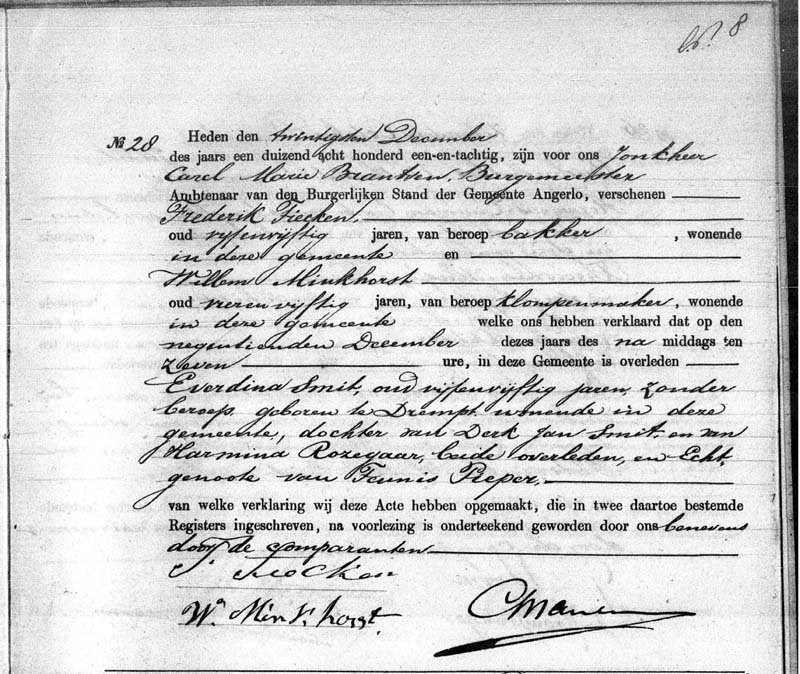 8
№ 28 Heden den twintigsten December
des jaars een duizend acht honderd een-en-tachtig, zijn voor ons Jonkheer
Carel Marie Brantsen, Burgemeester
Ambtenaar van den Burgerlijken Stand der Gemeente Angerlo, verschenen
Frederik Fiecken
oud vijfenvijftig jaren, van beroep bakker, wonende
in deze gemeente en
Willem Minkhorst
oud vierenvijftig jaren, van beroep klompenmaker, wonende
in deze gemeente welke ons hebben verklaard dat op den
negentienden December dezes jaars des na middags ten
zeven ure, in deze Gemeente is overleden
Everdina Smit, oud vijfenvijftig jaren, zonder
beroep, geboren te Drempt, wonende in deze
gemeente, dochter van Derk Jan Smit, en van
Harmina Rozegaar, beide overleden, en Echt-
genoote van Teunis Pieper.
van welke verklaring wij deze Acte hebben opgemaakt, die in twee daartoe bestemde
Registers ingeschreven, na voorlezing is onderteekend geworden door ons benevens
door de comparanten
Wm Minkhorst.